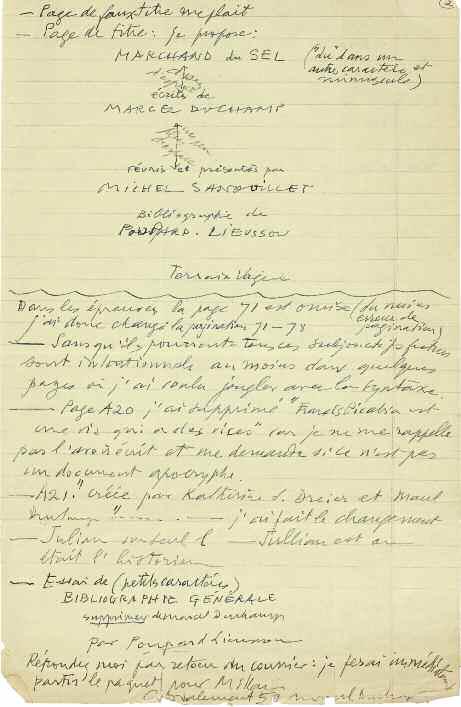 ②
— Page de faux titre me plait
— Page de titre : je propose :
MARCHAND du SEL ("du" dans un
autre caractère et
minuscule)
écrits de
MARCEL DUCHAMP
réunis et présentés par
MICHEL SANOUILLET
Bibliographie de
POUPARD-LIEUSSOU
Terrain Vague
Dans les épreuves la page 71 est omise (du moins
erreur de
pagination)
j'ai donc changé la pagination 71-78
— Sans qu'ils pourront tous ces subjonctifs
sont intentionnels au moins dans quelques
pages où j'ai voulu jongler avec la syntaxe.
— Page A20 j'ai supprimé "Francis Picabia est
une vis qui a des vices" car je ne me rappelle
pas l'avoir écrit et me demande si ce n'est pas
un document apocryphe.
— A21. "créée par Katherine S. Dreier et Marcel
Duchamp"...... — j'ai fait le changement
— Julian un seul l — Jullian est ou
était l'historien
— Essai de (petits caractères)
BIBLIOGRAPHIE GÉNÉRALE
supprimer de Marcel Duchamp
par Poupard Lieussou
Répondez moi par retour du courrier : je ferai
partir le paquet pour Milan